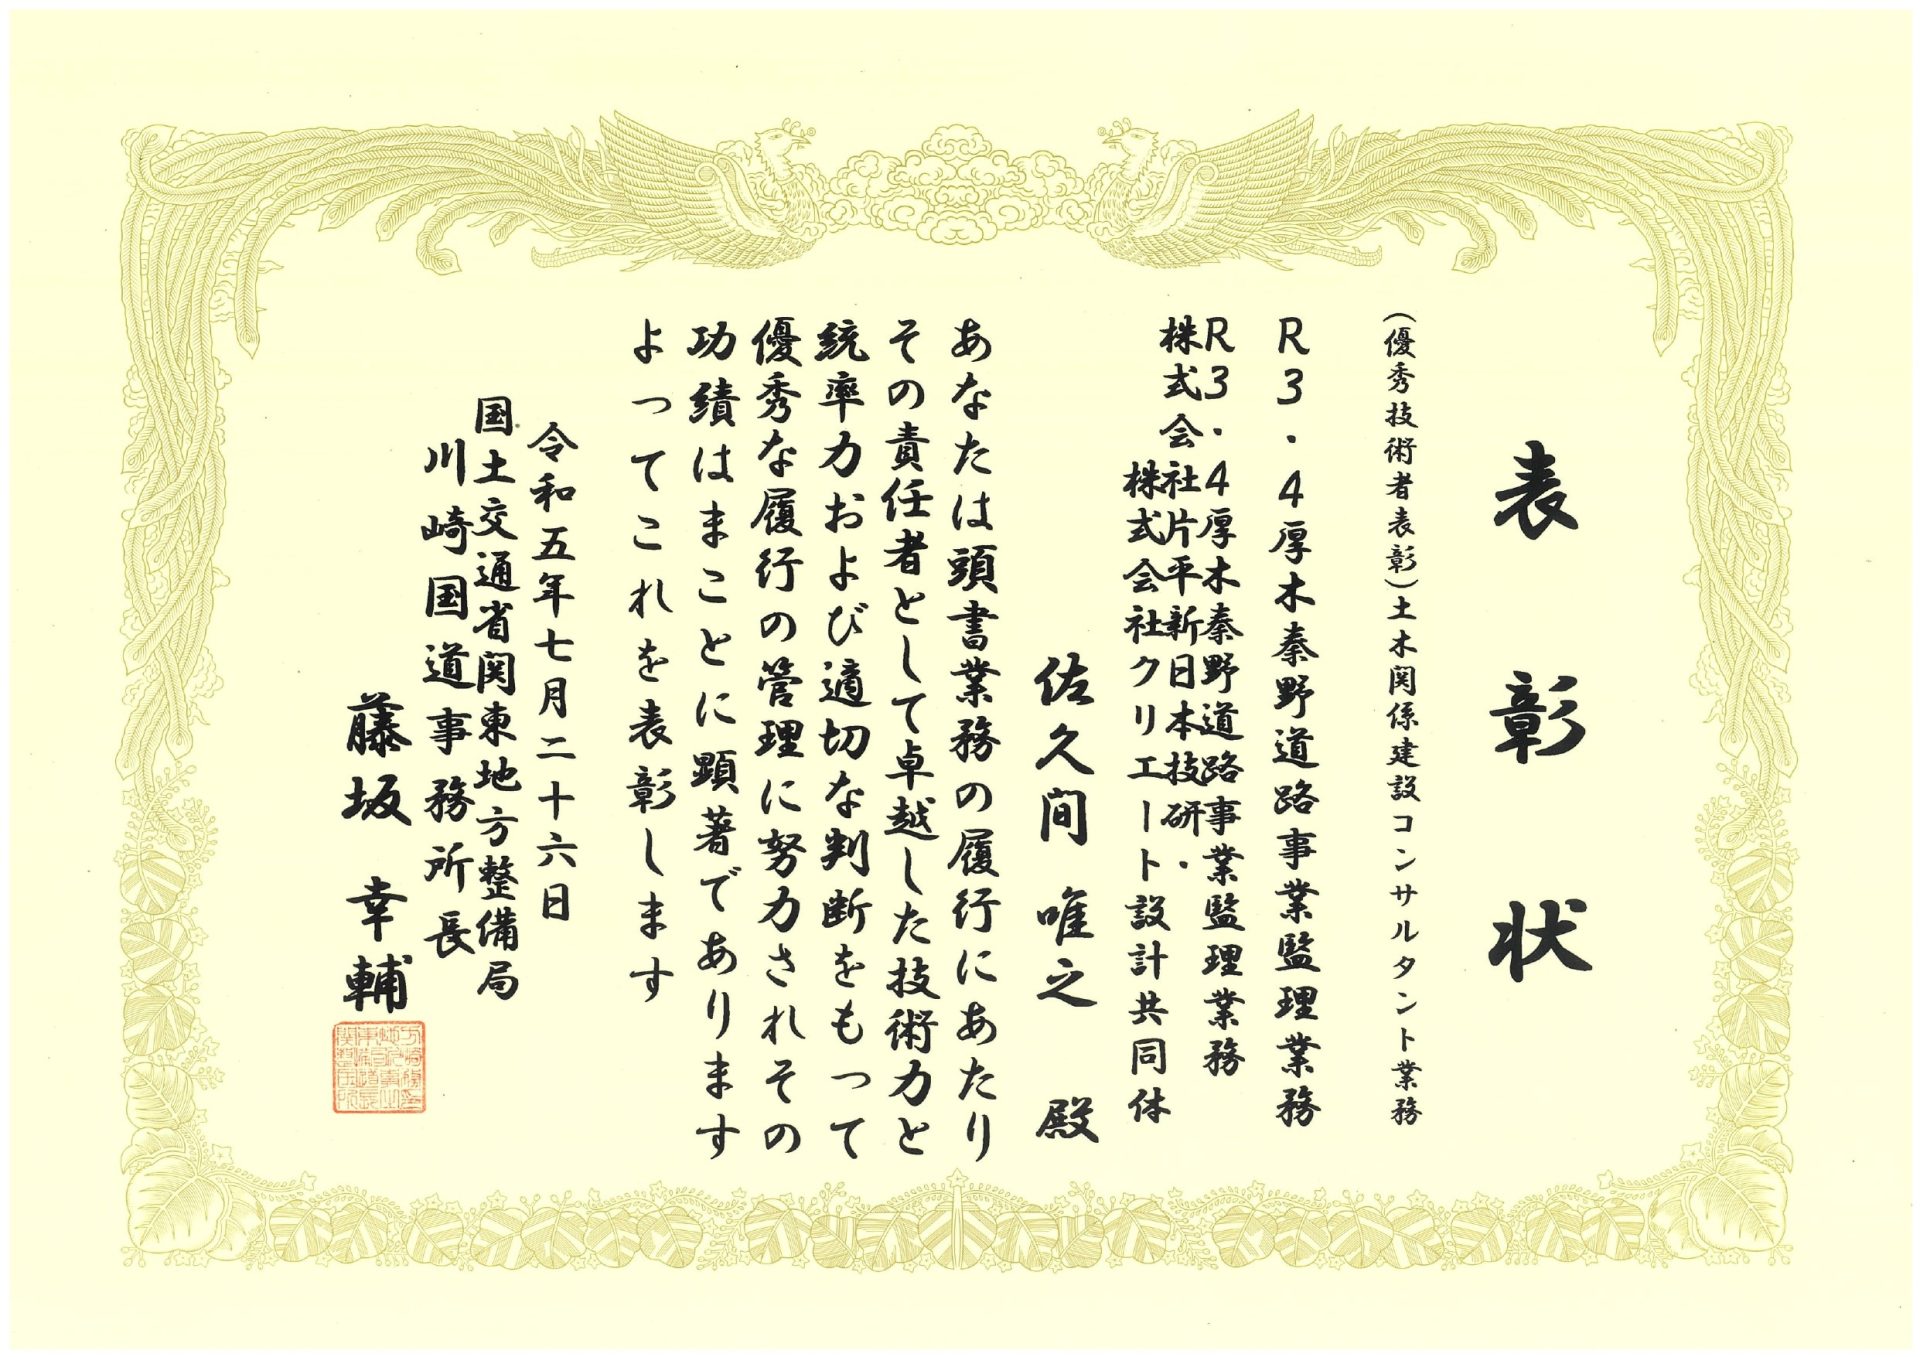 表彰状
(優秀技術者表彰)土木関係建設コンサルタント業務
R3・4厚木秦野道路事業監理業務
R3・4厚木秦野道路事業監理業務
株式会社片平新日本技研・
株式会社クリエート設計共同体
佐久間唯之 殿
あなたは頭書業務の履行にあたり
その責任者として卓越した技術力と
統率力および適切な判断をもって
優秀な履行の管理に努力されその
功績はまことに顕著であります
よってこれを表彰します
令和五年七月二十六日
国土交通省関東地方整備局
川崎国道事務所長
藤坂幸輔